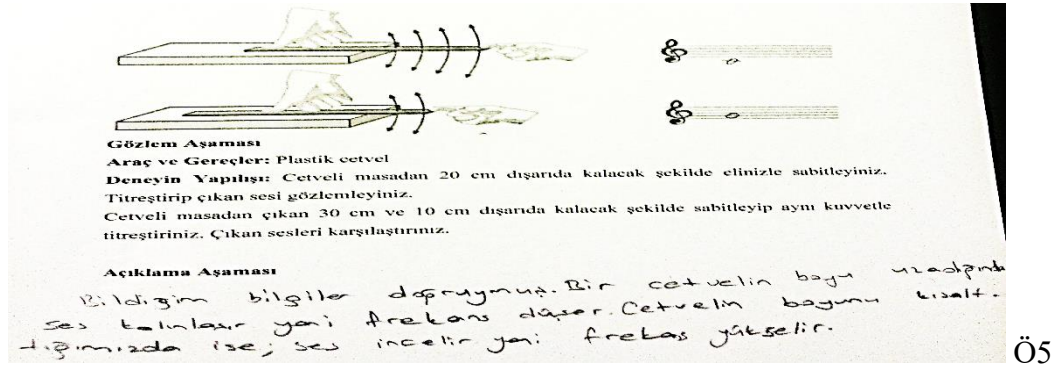 Gözlem Aşaması
Araç ve Gereçler: Plastik cetvel
Deneyin Yapılışı: Cetveli masadan 20 cm dışarıda kalacak şekilde elinizle sabitleyiniz.
Titreştirip çıkan sesi gözlemleyiniz.
Cetveli masadan çıkan 30 cm ve 10 cm dışarıda kalacak şekilde sabitleyip aynı kuvvetle
titreştiriniz. Çıkan sesleri karşılaştırınız.
Açıklama Aşaması
Bildiğim bilgiler doğruymuş. Bir cetvelin boyu uzadığında
ses kalınlaşır yani frekans düşer. Cetvelin boyunu kısalt-
tığımızda ise; ses incelir yani frekas yükselir.
Ö5